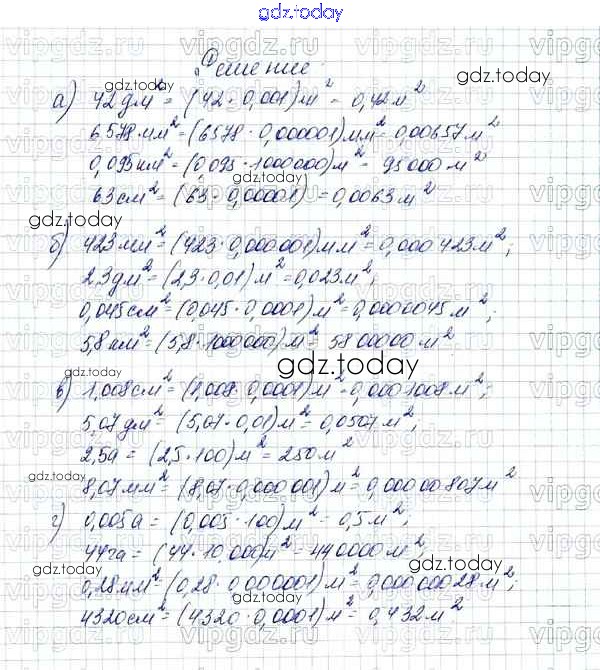 gdz.today
Решение
а) 42 дм² = (42 · 0,001) м² = 0,42 м²
6578 мм² = (6578 · 0,000001) мм² = 0,00657 м²
0,095 км² = (0,095 · 1000000) м² = 95000 м²
63 см² = (63 · 0,00001) = 0,0063 м²
б) 423 мм² = (423 · 0,000001) мм² = 0,000423 м²;
2,3 дм² = (2,3 · 0,01) м² = 0,023 м²;
0,045 см² = (0,045 · 0,0001) м² = 0,0000045 м²;
5,8 км² = (5,8 · 1000000) м² = 5800000 м²
в) 1,008 см² = (1,008 · 0,0001) м² = 0,0001008 м²;
5,07 дм² = (5,07 · 0,01) м² = 0,0507 м²;
2,5 а = (2,5 · 100) м² = 250 м²
8,07 мм² = (8,07 · 0,000001) м² = 0,00000807 м²
г) 0,005 а = (0,005 · 100) м² = 0,5 м²;
44 га = (44 · 10.000) м² = 440000 м²;
0,28 мм² = (0,28 · 0,000001) м² = 0,00000028 м²;
4320 см² = (4320 · 0,0001) м² = 0,432 м²